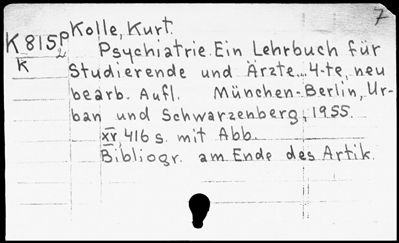 7
K815p Kolle, Kurt.
2
K Psychiatrie. Ein Lehrbuch für
Studierende und Ärzte... 4-te, neu
bearb. Aufl. München-Berlin, Ur-
ban und Schwarzenberg, 1955.
XV, 416 s. mit Abb.
Bibliogr. am Ende des Artik.